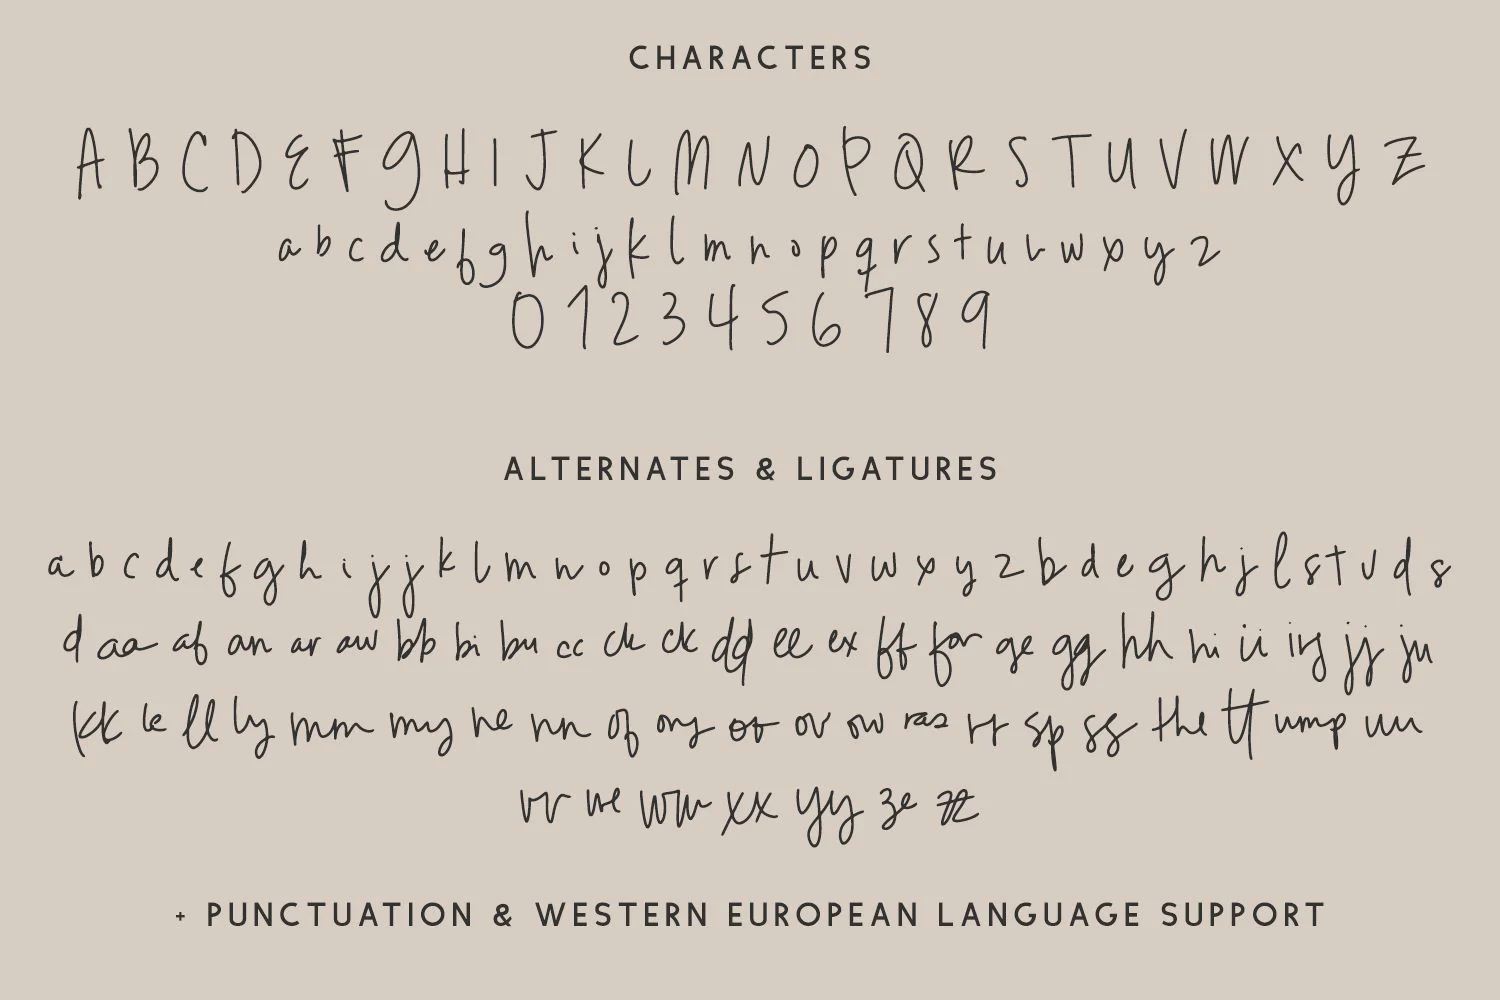 CHARACTERS
A B C D E F G H I J K L M N O P Q R S T U V W X Y Z
a b c d e f g h i j k l m n o p q r s t u v w x y z
0 1 2 3 4 5 6 7 8 9
ALTERNATES & LIGATURES
a b c d e f g h i j j k l m n o p q r s t u v w x y z b d e g h j l s t v d s
d aa af an ar aw bb bi bu cc ck ck dd ee ex ff for ge gg hh hi ii ing jj ju
kk le ll ly mm my ne nn of ong oo ov ow ras rr sp ss the tt ump uu
vv we ww xx yy ze zz
+ PUNCTUATION & WESTERN EUROPEAN LANGUAGE SUPPORT